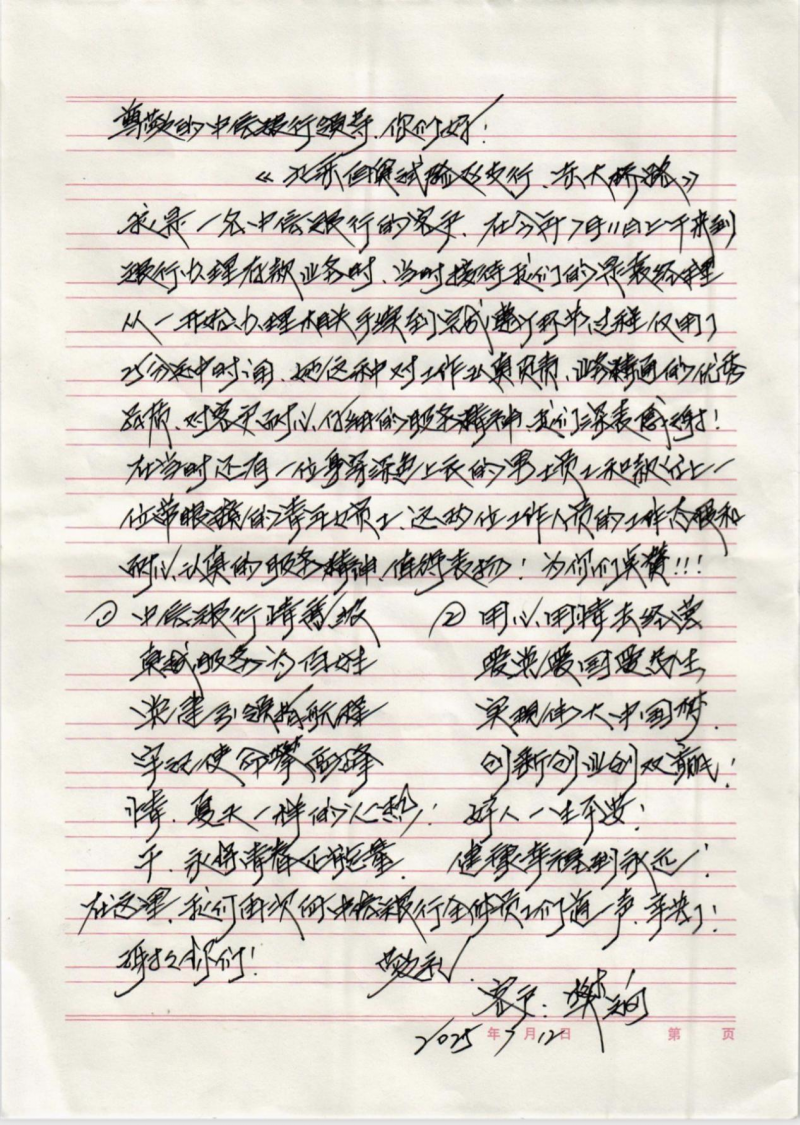 尊敬的中信银行领导、你们好！
《北京自贸试验区支行、东大桥路》
我是一名中信银行的客户、在今年7月11日上午来到
银行办理存款业务时、当时接待我们的景襄经理
从一开始办理相关手续到完成整个环节过程仅用了
25分钟时间、她这种对工作认真负责、业务精通的优秀
品质、对客户耐心、仔细的服务精神、我们深表感谢！
在当时还有一位身穿深色上衣的男士员工和款台上一
位带眼镜的青年女员工、这两位工作人员的工作态度和
耐心、认真的服务精神、值得表扬！为你们点赞！！！
① 中信银行晋级 ② 用心用情去经营
卓越服务为百姓 爱党爱国爱民生
党建引领指航程 实现伟大中国梦
牢记使命攀高峰 创新创业创双赢！
情、夏天一样的火热！ 好人一生平安！
干、永恒青春正能量 健康幸福到永远！
在这里、我们再次向中信银行全体员工们道一声、辛苦了！
谢谢你们！ 敬礼
客户：
2025年7月12日
第 页